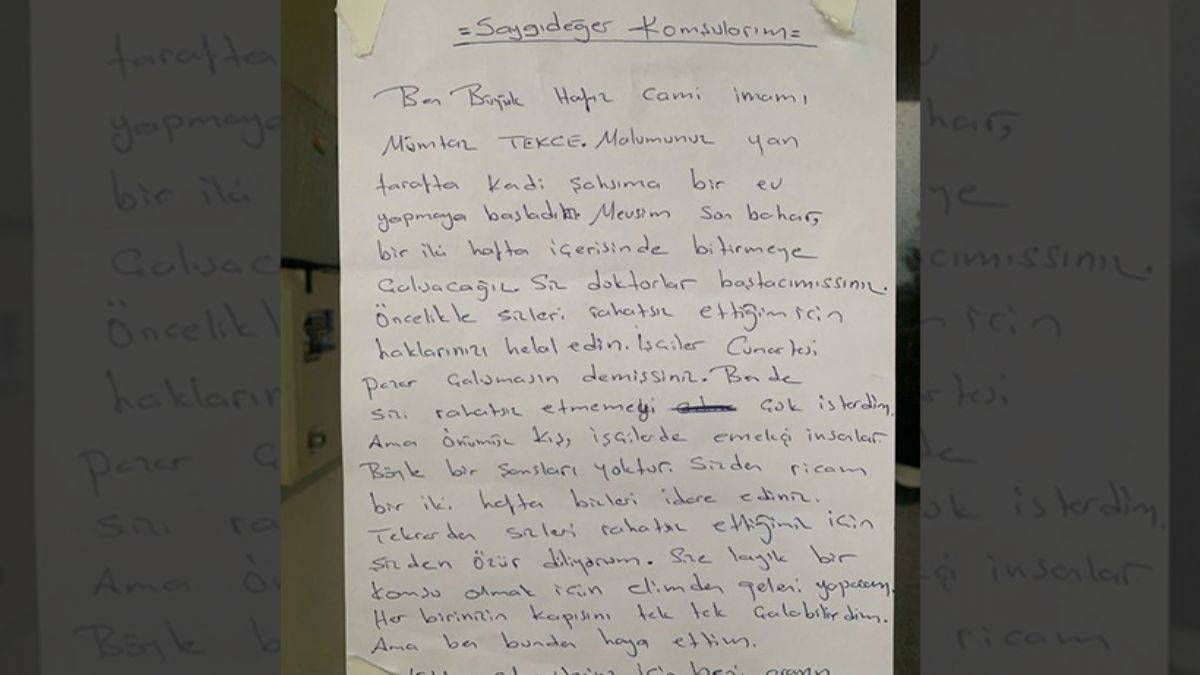 =Saygıdeğer Komşularım=
Ben Büyük Hafız Cami imamı,
Mümtaz TEKCE. Malumunuz yan
tarafta kendi şahsıma bir ev
yapmaya başladık. Mevsim son bahar,
bir iki hafta içerisinde bitirmeye
Çalışacağız. Siz doktorlar baştacımıssınız.
Öncelikle sizleri rahatsız ettiğim için
haklarınızı helal edin. İşçiler Cumartesi
pazar Çalışmasın demişsiniz. Ben de
sizi rahatsız etmemeyi Çok isterdim.
Ama Önümüz Kış, işçilerde emekçi insanlar.
Böyle bir Şansları yoktur. Sizden ricam
bir iki hafta bizleri idare ediniz.
Tekrardan sizleri rahatsız ettiğimiz için
sizden Özür diliyorum. Size layık bir
Komşu olmak için elimden geleni yaparım.
Her birinizin Kapısını tek tek Çalabilirdim.
Ama ben bundan haya ettim.
için beni arayın